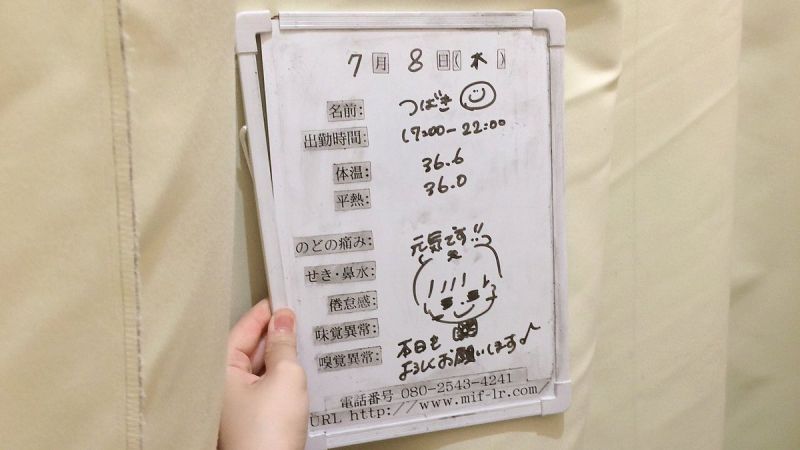 7月 8日(水)
名前: つばき
出勤時間: 17:00-22:00
体温: 36.6
平熱: 36.0
のどの痛み: 元気です!!
せき・鼻水:
倦怠感:
味覚異常:
嗅覚異常: 本日も
よろしくお願いします♪
電話番号 080-2543-4241
URL http://www.mif-lr.com/